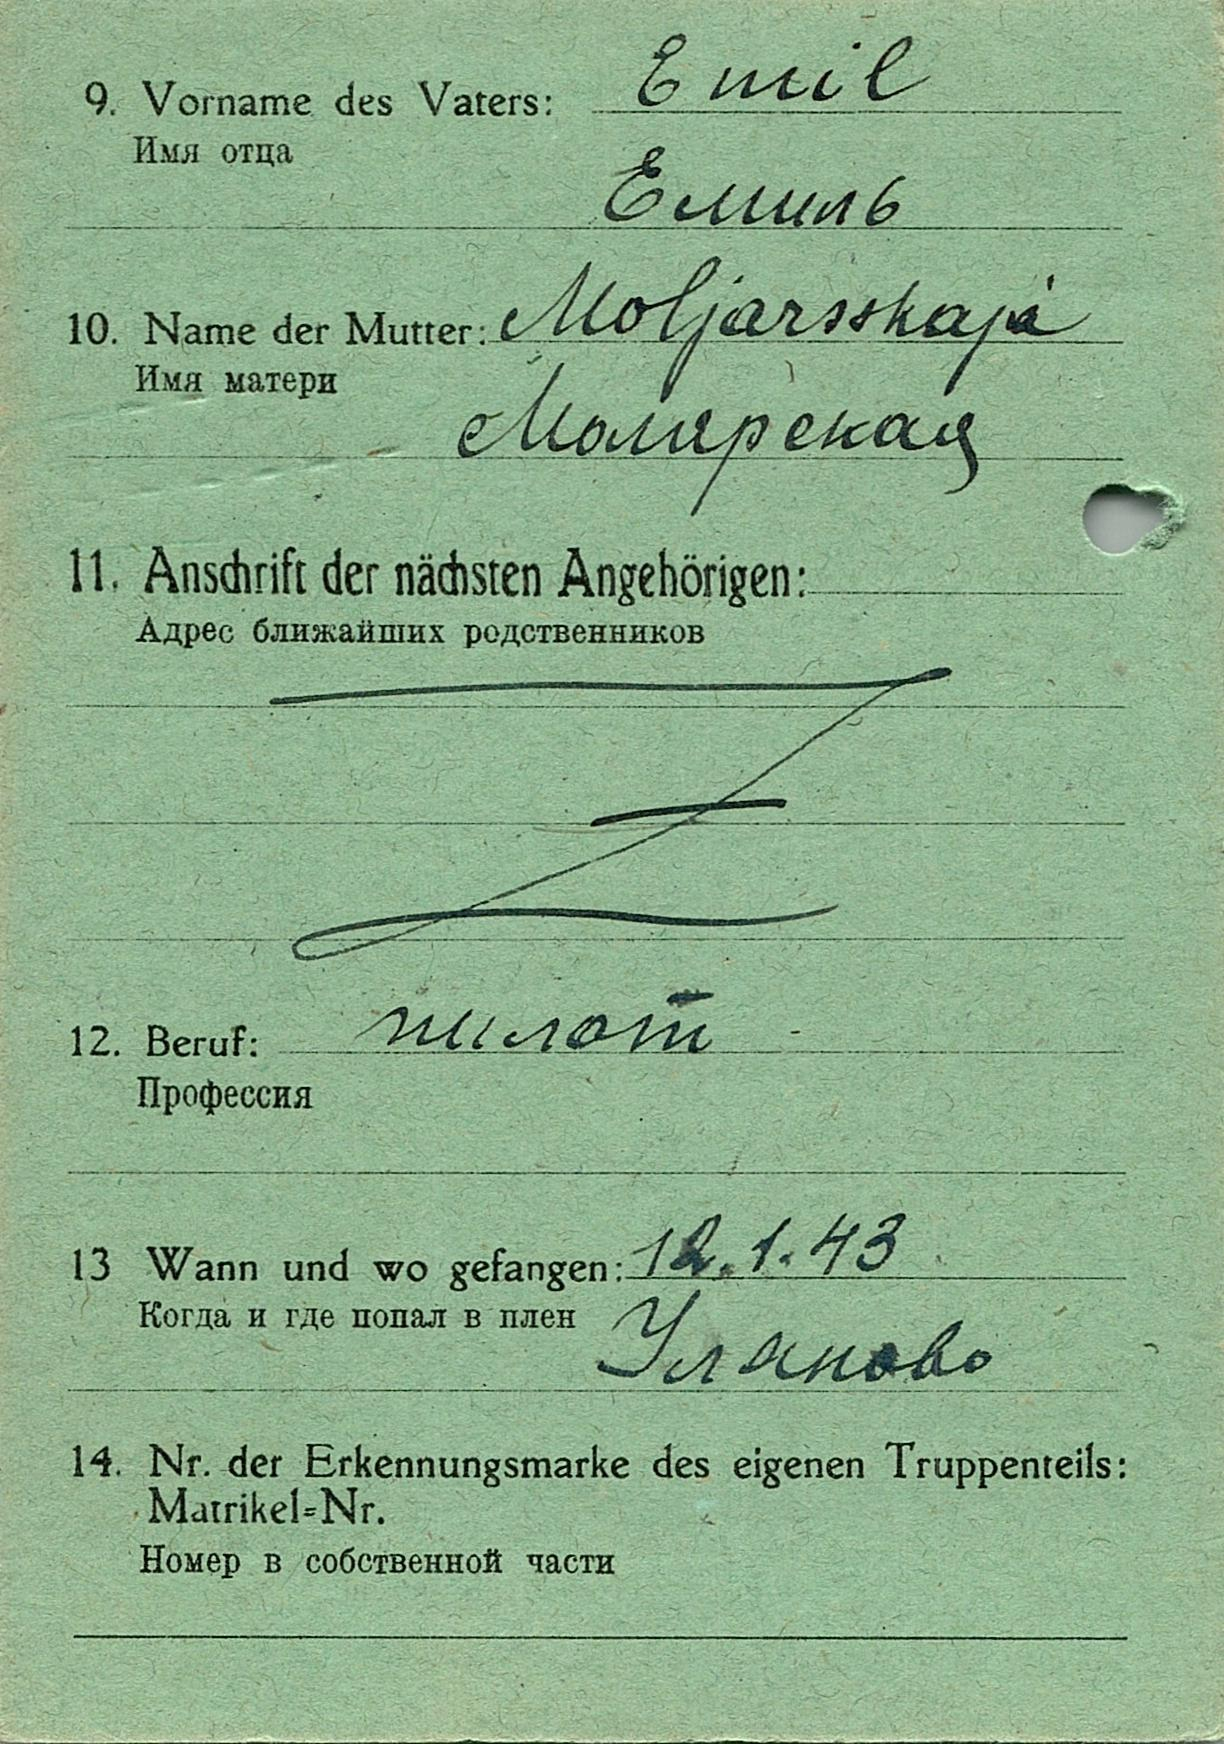 9. Vorname des Vaters: Emil
Имя отца
Емиль
10. Name der Mutter: Moljarsskaja
Имя матери
Молярская
11. Anschrift der nächsten Angehörigen:
Адрес ближайших родственников
12. Beruf: пилот
Профессия
13 Wann und wo gefangen: 12.1.43
Когда и где попал в плен
Уланово
14. Nr. der Erkennungsmarke des eigenen Truppenteils:
Matrikel=Nr.
Номер в собственной части